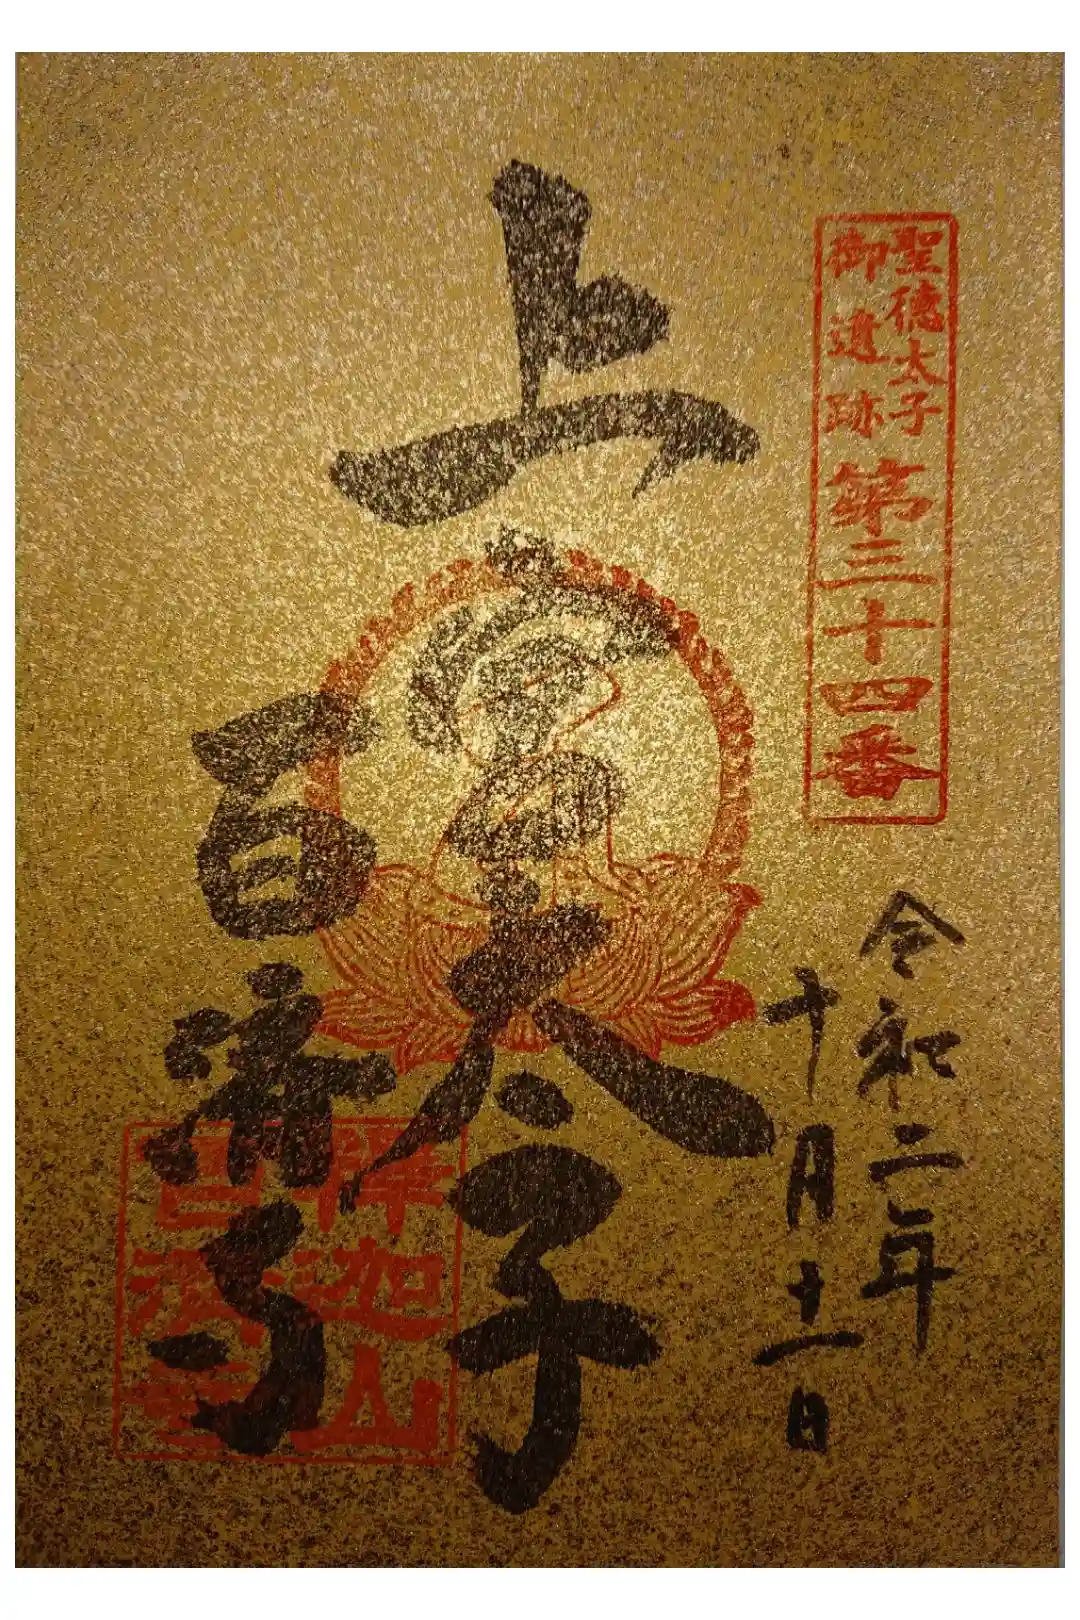 聖徳太子
御遺跡
第三十四番
令和二年
十月十一日
上宮太子
百濟寺
釋迦山
百濟寺